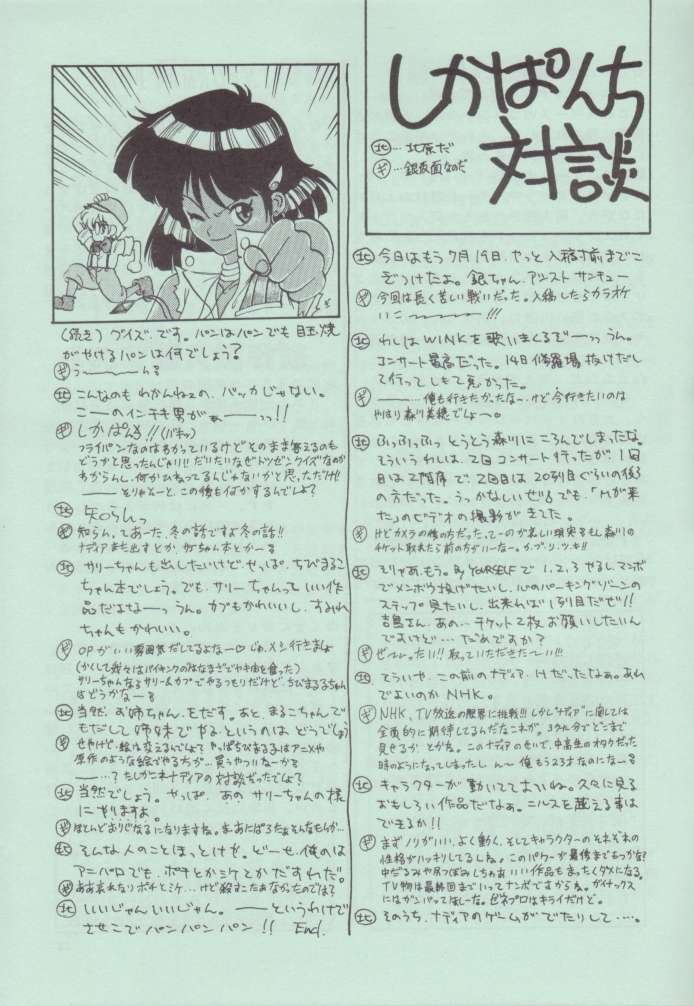 しかぱんち
対談
㊗…北原だ
㋖…銀仮面なのだ
今日はもう7月19日、やっと入稿寸前までこ
ぎつけたよ。銀ちゃん、アシストサンキュー
㋖ 今回は長く苦しい戦いだった。入稿したらカラオケ
いこ〜〜〜!!!
わしはWINKを歌いまくるでーーっっ うん。
コンサート最高だった。14日修羅場抜けだし
て行ってしもて良かった。
㋖ ーーー…俺も行きたかったな〜、けど今行きたいのは
やはり森川美穂でしょ〜。
ふっふっふっ とうとう森川にころんでしまったな。
そういうわしは、2回コンサート行ったが、1回
目は2階席で、2回目は20列目ぐらいの後3
の方だった。うっかなしいぜ!! でも、「Mが来
た」のビデオの撮影がきてた。
㋖ けどカメラの後の方だった、てーのが哀しい現実
チケット取れたら前の方がいーなー。カ・ブ・リ・ツ・キ!!
そりゃあ、もう。By YOURSELFで1,2,3やるし、マンボ
でメンボウ投げてたいし、心のパーキングゾーンの
ステップ見たいし、出来れば1列目だぜ!!
吉鳥さん、あの…チケット2枚お願いしたいん
ですけど…だめですか?
㋖ ぜーったい!!取っていただきたーい!!!
そういや、この前のナディア、Hだったなぁ。あれ
でよいのかNHK。
㋖ NHK、TV放送の限界に挑戦!! しかし"ナディア"に関しては
全面的に期待してるんだなこれが。39分でどこまで
見せるか とかね。このナディアのせいで、中高生のオタクだった
時のようになってしまったし ん〜 俺もう23才なのになーる
キャラクターが動いててよいね。久々に見る
おもしろい作品だなぁ。ニルスを越える事は
できるか!!
㋖ まずノリがいい、よく動く、そしてキャラクターのそれぞれの
性格がハッキリしてるしね。このパワーが最後までもつかな?
中だるみや尻つぼみしちゃあいい作品もまったくダメになる。
TV物は最終回までいってナンボですからね。ガイナックス
にはガンバッてほしーな。ゼネプロはキライだけど。
そのうち、ナディアのゲームがでたりして…。
(続き)クイズ、です。パンはパンでも目玉焼
がやけるパンは何でしょう?
㋖ う〜〜〜〜んる
こんなのもわかんねェの、バッカじゃない。
こーのインチキ男がぁーーっっ!!
㋖ しかぱんち!!(バキッ)
フライパンなのはわかっているけどそのまま答えるのも
どうかと思ったんじゃ!!! だいたいなぜトツゼンクイズなのか
わからんし、何かひねってるんじゃないかと思っただけ!!
ーーとりゃとーと、この後も何かするんでしょ?
知らんっ
㋖ 知らん、てあーた、冬の話ですよ冬の話!!
ナディアまた出すとか、サリーちゃん本とかーる
サリーちゃんも出したいけど、やっぱ、ちびまるこ
ちゃん本でしょう。でも、サリーちゃんっていい作
品だよなーっ うん。カブもかわいいし、すみれ
ちゃんもかわいい。
㋖ OPがいい雰囲気だしてるよなー♡ じゃ、メシ行きましょ
(かくして我々はバイキングのはなまさでヤキ肉を食った)
サリーちゃんならサリー&カブでやるつもりだけど、ちびまる子ちゃん
はどうかなーる
当然、お姉ちゃん、をだす。あと、まるこちゃんで
もだして姉妹でやる、というのはどうでしょう
㋖ せやけど、絵は変えるんでしょ? やっぱちびまる子はアニメや
原作のような絵でやる方が…買うやついなーかる
ーー…?たしかこれナディアの対談だったでしょ?
当然でしょう。やっぱ、あのサリーちゃんの様
にやりますよ。
㋖ ほとんどおりじなるになりますね。ま、あにぱろたぁそんなもんか…
そんな人のことほっとけを。どーせ、俺のは
アニパロでも、ポチとかミケとかだすわだ。
㋖ ああ哀れなりポチとミケ…けど殺すこたぁなかったのでは?
いいじゃんいいじゃん。ーーというわけで
させこでパンパンパン!! End.